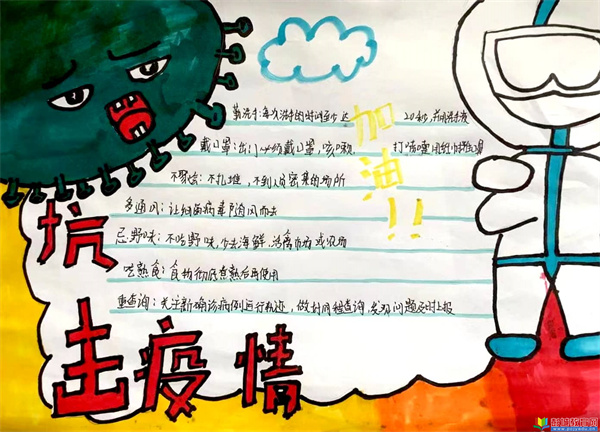 勤洗手:每次洗手的时间至少达 20秒,并用洗手液
戴口罩:出门必须戴口罩,咳嗽 打喷嚏用纸
不聚会:不扎堆,不到人员密集的场所
多通风:让细菌病毒随风而去
忌野味:不吃野味,少去海鲜,活禽市场或农场
吃熟食:食物彻底煮熟后再使用
重查询:关注新确诊病例运行轨迹,做到同程查询,发现问题及时上报
加油!!
抗
击疫情